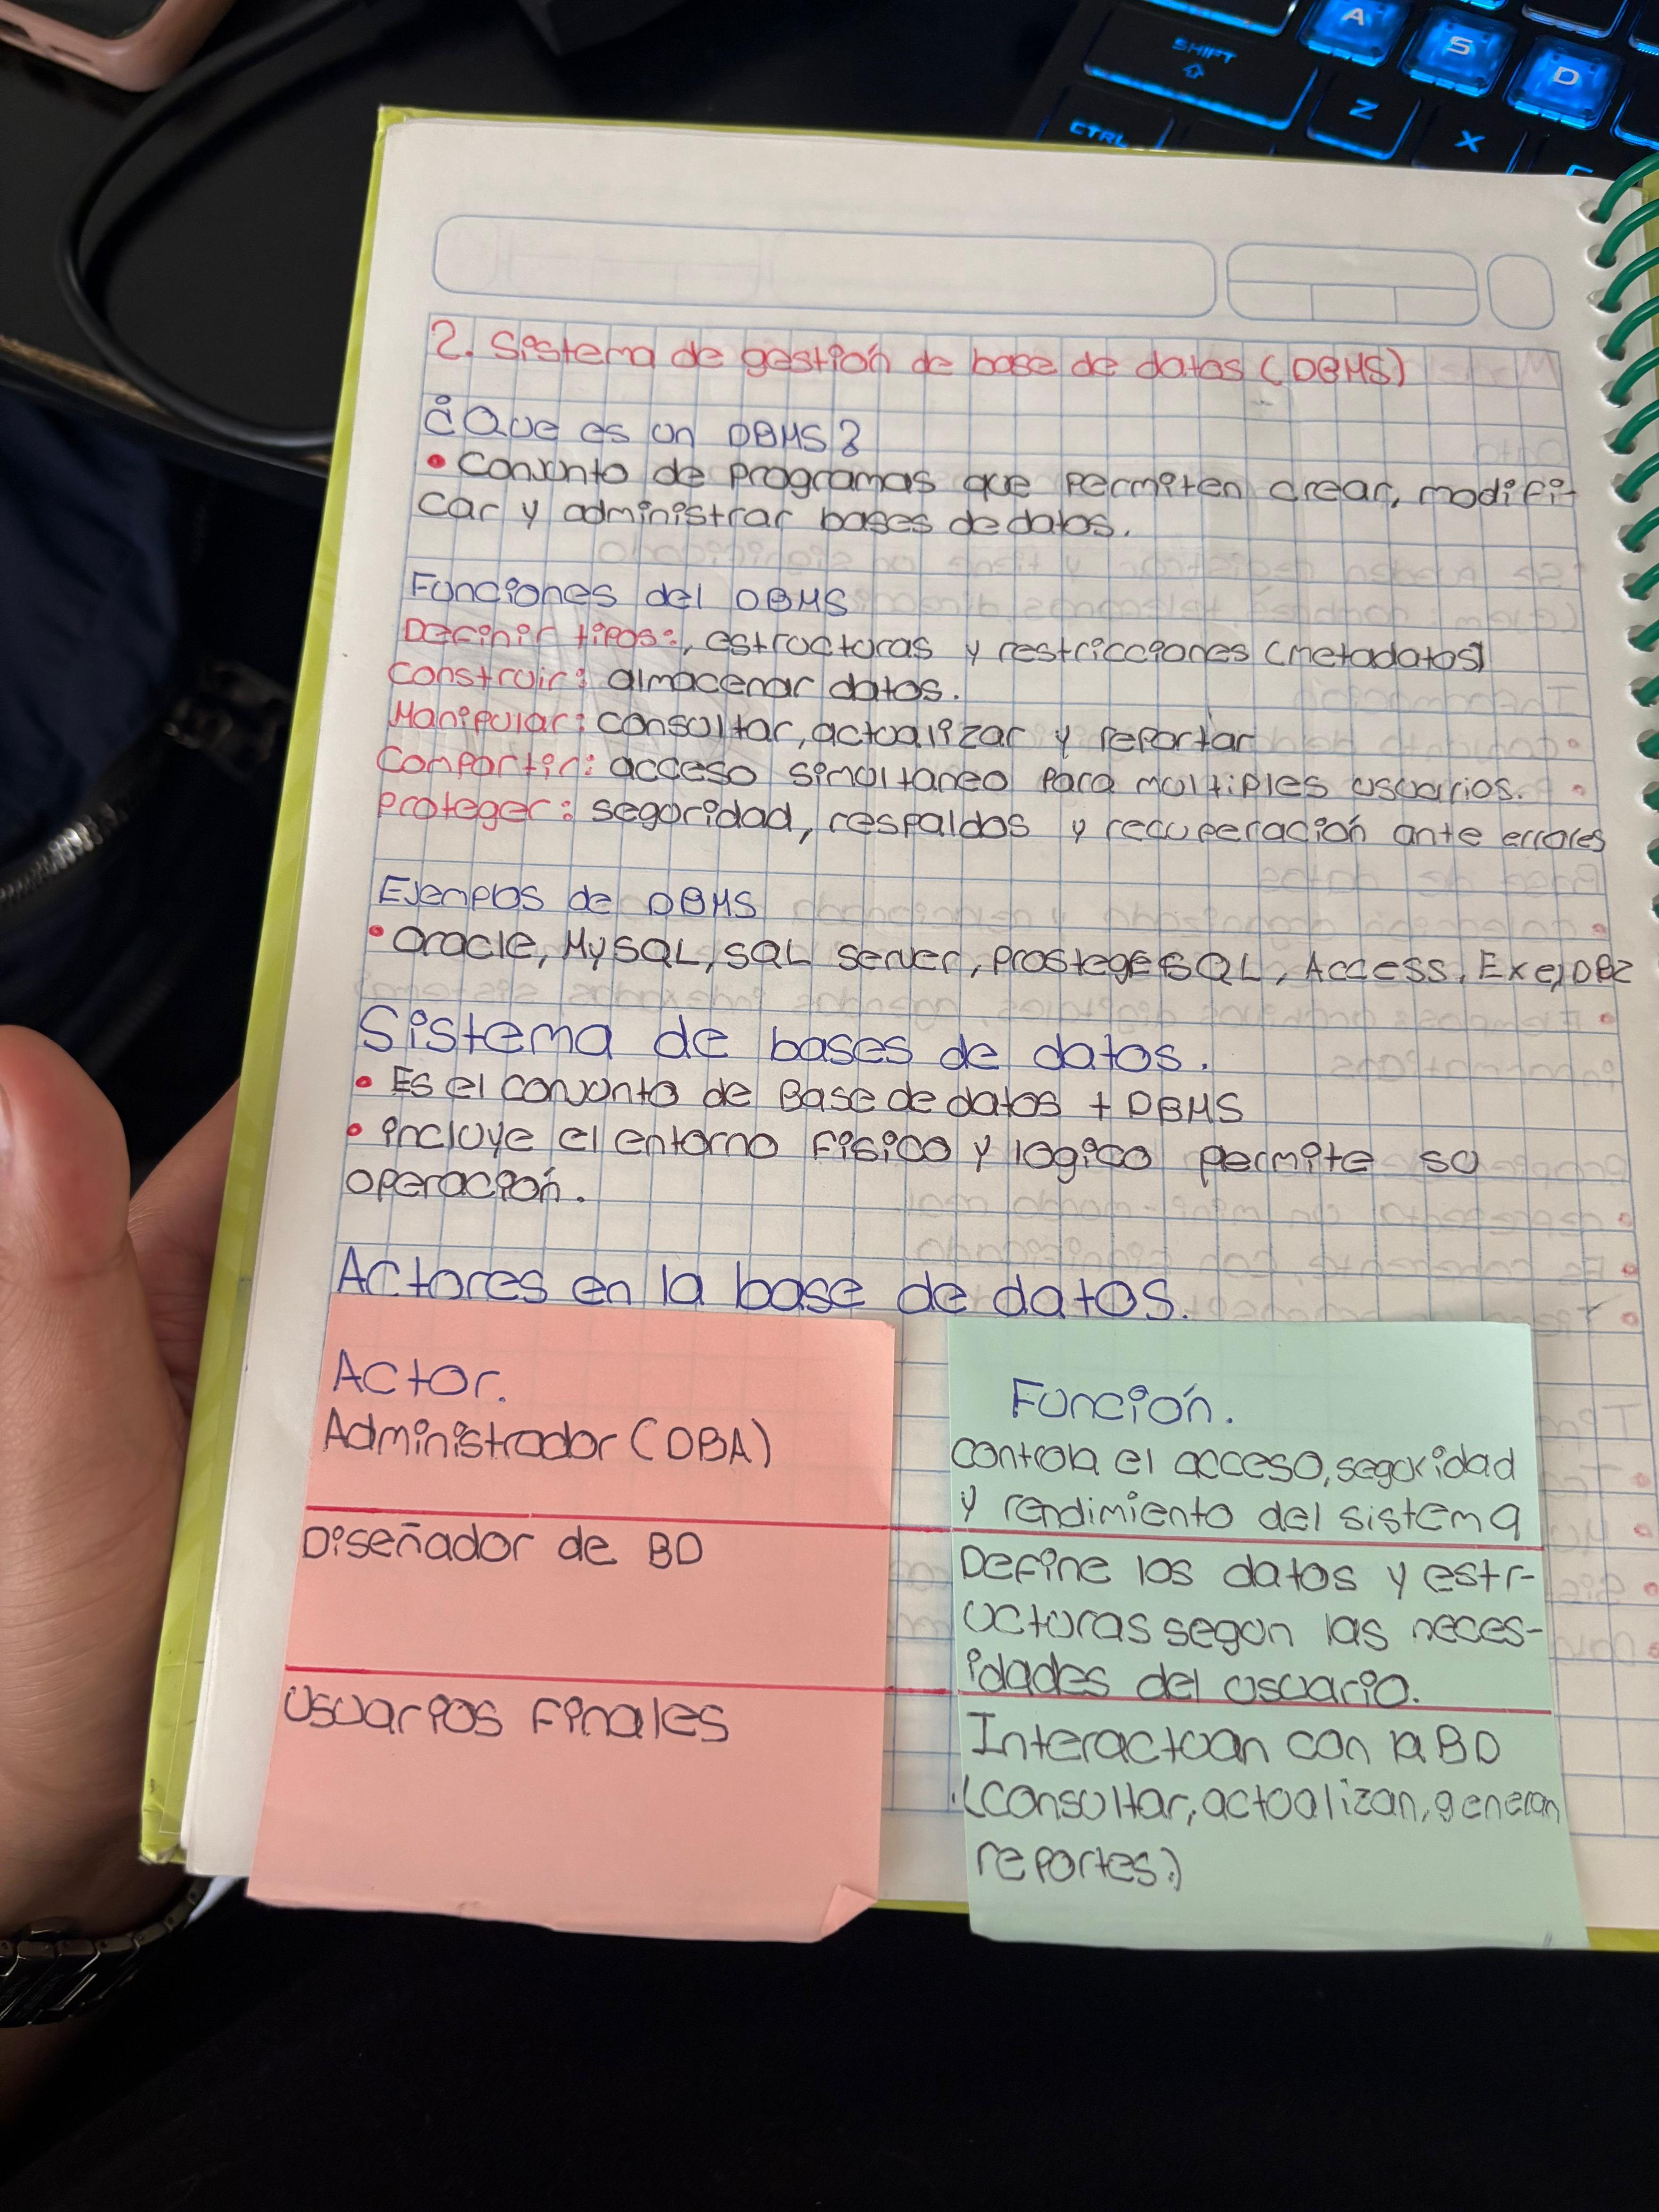 A
S
D
SHIFT
Z
X
CTRL
2. Sistema de gestión de base de datos (DBMS)
¿Que es un DBMS?
• Conjunto de programas que permiten crear, modifi-
car y administrar bases de datos.
Funciones del DBMS
Definir tipos:, estructuras y restricciones (metadatos)
Construir: almacenar datos.
Manipular: consultar, actualizar y reportar
Compartir: acceso simultaneo para multiples usuarios.
Proteger: seguridad, respaldos y recuperación ante errores
Ejemplos de DBMS
• Oracle, MySQL, SQL Server, ProstegeSQL, Access, Exel, DB2
Sistema de bases de datos.
• Es el conjunto de Base de datos + DBMS
• incluye el entorno fisico y logico permite su
operación.
Actores en la base de datos.
Actor.
Administrador (DBA)
Diseñador de BD
Usuarios finales
Función.
Controla el acceso, seguridad
y rendimiento del sistema
Define los datos y estr-
ucturas segun las neces-
idades del usuario.
Interactuan con la BD
(Consultar, actualizan, generan
reportes.)